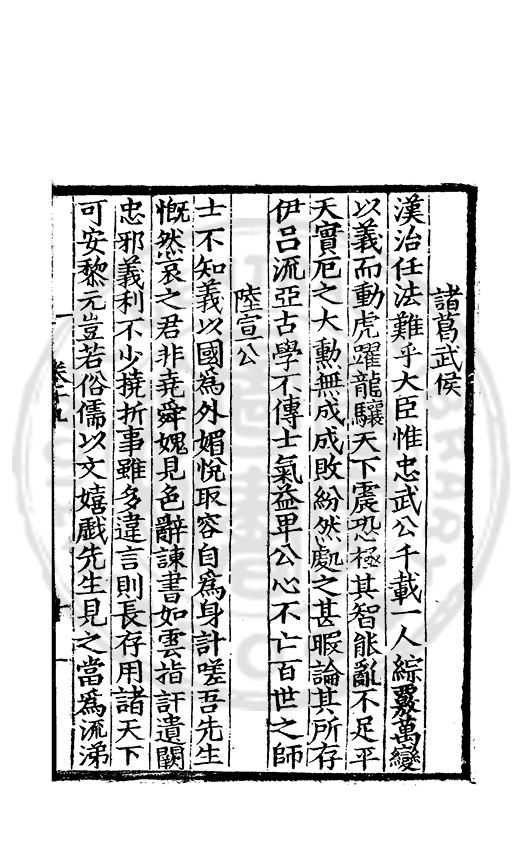 諸葛武侯
漢治任法難乎大臣惟忠武公千載一人綜覈萬變
以義而動虎躍龍驤天下震恐極其智能亂不足平
天實厄之大勳無成成敗紛然處之甚暇論其所存
伊吕流亞古學不傳士氣益卑公心不亡百世之師
陸宣公
士不知義以國爲外媚悅取容自爲身計嗟吾先生
慨然哀之君非堯舜媿見色辭諫書如雲指訐遺闕
忠邪義利不少撓折事雖多違言則長存用諸天下
可安黎元豈若俗儒以文嬉戲先生見之當爲流涕
卷十九